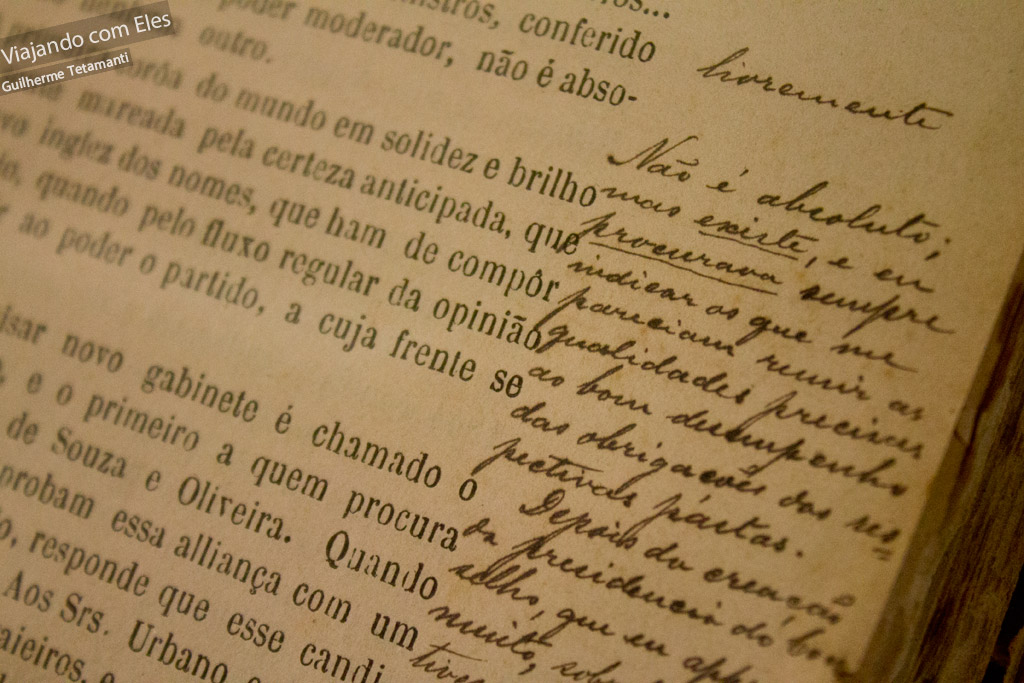 Viajando com Eles
Guilherme Tetamanti
ministros, conferido
poder moderador, não é abso-
outro.
do mundo em solidez e brilho
mareada pela certeza anticipada, que
inglez dos nomes, que ham de compôr
quando pelo fluxo regular da opinião
ao poder o partido, a cuja frente se
novo gabinete é chamado o
e o primeiro a quem procura
de Souza e Oliveira. Quando
essa alliança com um
responde que esse candi
Aos Srs. Urbano
livremente
Não é absoluto;
mas existe, e eu
procurava sempre
indicar os que me
pareciam reunir as
qualidades precisas
ao bom desempenho
das obrigações das res=
pectivas pastas.
Depois da creação
da presidencia do Con
selho, que eu
muito, sobr